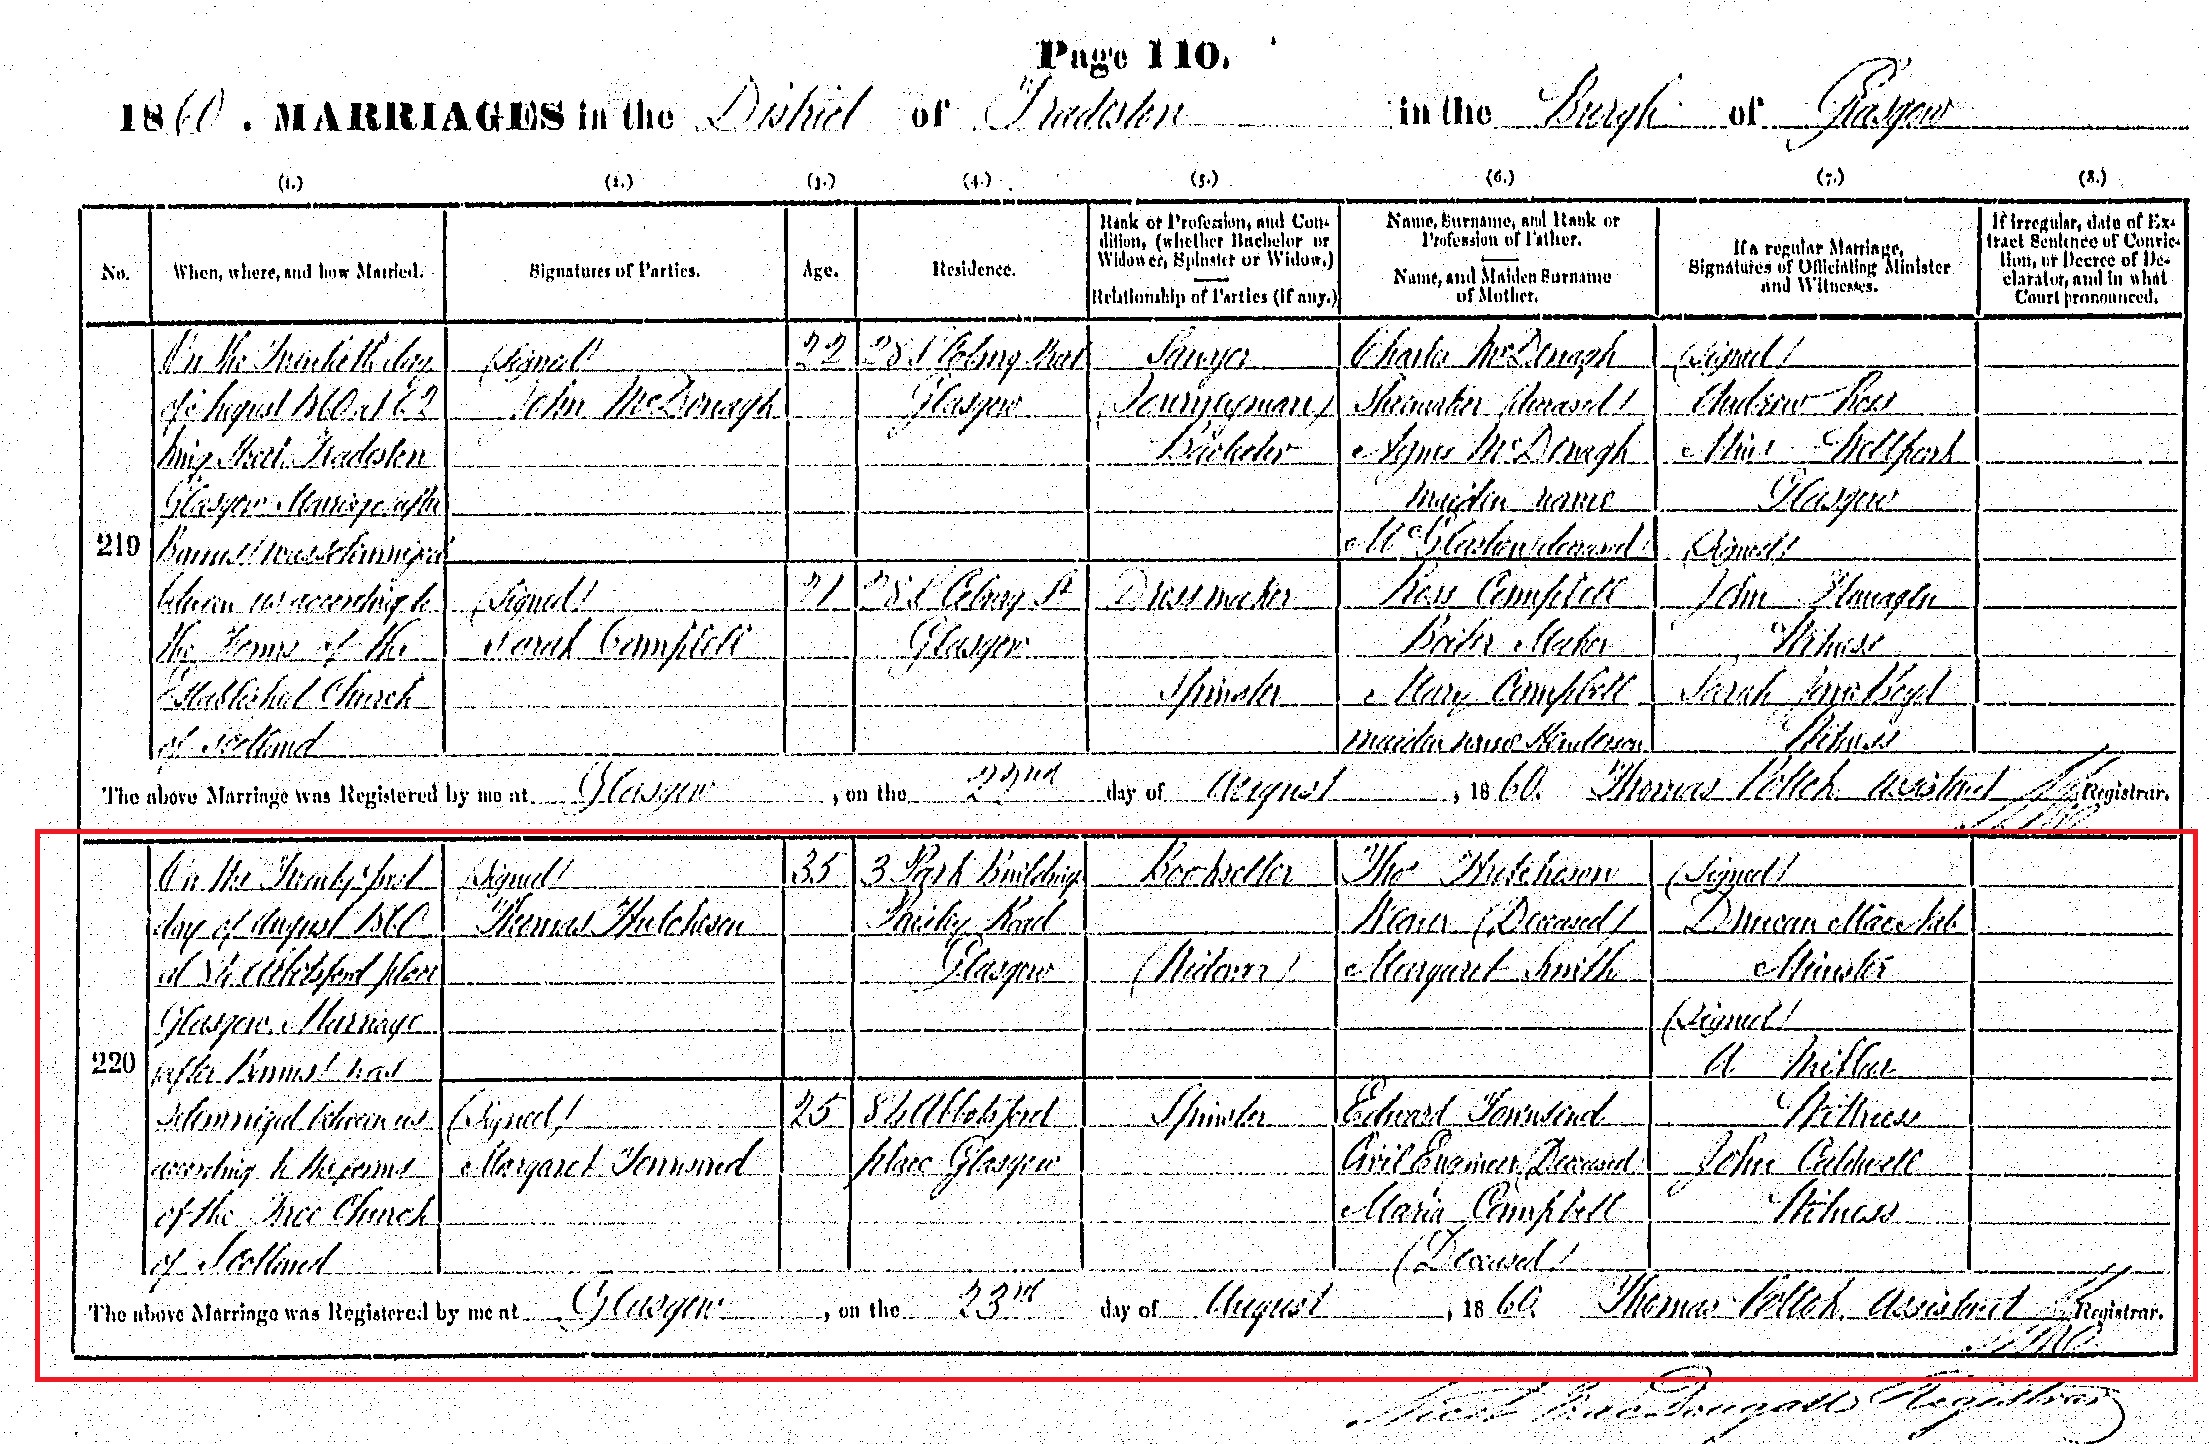 Page 110.
1860. MARRIAGES in the District of Tradeston in the Burgh of Glasgow
(1.) (2.) (3.) (4.) (5.) (6.) (7.) (8.)
No.
When, where, and how Married.
Signatures of Parties.
Age.
Residence.
Rank or Profession, and Con-
dition, (whether Bachelor or
Widower, Spinster or Widow.)
Relationship of Parties (if any.)
Name, Surname, and Rank or
Profession of Father.
Name, and Maiden Surname
of Mother.
If a regular Marriage,
Signatures of Officiating Minister
and Witnesses.
If irregular, date of Ex-
tract Sentence of Convic-
tion, or Decree of De-
clarator, and in what
Court pronounced.
219
On the Twentieth day
of August 1860 at 62
King Street Tradeston
Glasgow Marriage (after
Banns) was solemnized
between us according to
the Forms of the
Established Church
of Scotland
(Signed)
John McDonagh
22
28 Coburg Street
Glasgow
Sawyer
(Journeyman)
Bachelor
Charles McDonagh
Shoemaker (deceased)
Agnes McDonagh
maiden name
(deceased)
(Signed)
Andrew Ross
Minr Wellpark
Glasgow
(Signed)
John
Witness
Sarah Jane Boyd
Witness
(Signed)
Sarah Campbell
21
28 Coburg St
Glasgow
Dressmaker
Spinster
Ross Campbell
Boiler Maker
Mary Campbell
maiden name Henderson
The above Marriage was Registered by me at Glasgow, on the 22nd day of August, 1860. Thomas Pollok Assistant Registrar.
220
On the Twenty first
day of August 1860
at 84 Abbotsford place
Glasgow Marriage
(after Banns) was
solemnized between us
according to the forms
of the Free Church
of Scotland
(Signed)
Thomas Hutcheson
35
3 Park Buildings
Paisley Road
Glasgow
Bookseller
(Widower)
Thos Hutcheson
Weaver (Deceased)
Margaret Smith
(Signed)
Duncan Macnab
Minister
(Signed)
A Millar
Witness
John Caldwell
Witness
(Signed)
Margaret Townsend
25
84 Abbotsford
place Glasgow
Spinster
Edward Townsend
Civil Engineer (Deceased)
Maria Campbell
(Deceased)
The above Marriage was Registered by me at Glasgow, on the 23rd day of August, 1860. Thomas Pollok Assistant Registrar.
Nicol MacDougall Registrar